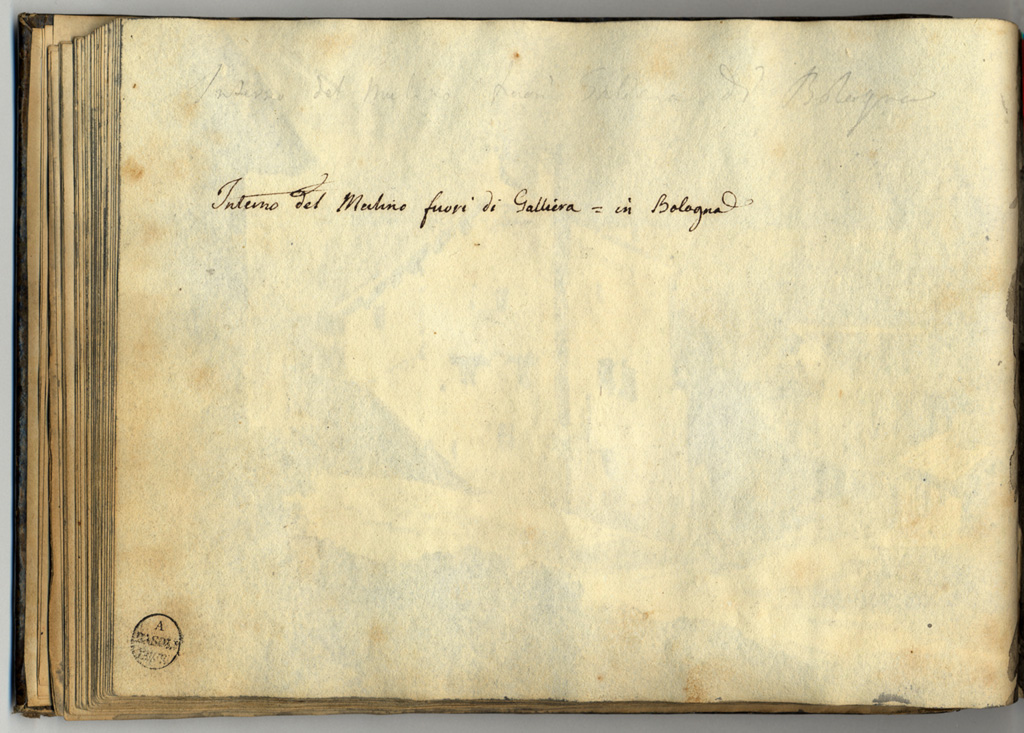 Interno del Mulino fuori Galliera di Bologna
Interno del Mulino fuori di Galliera = in Bologna
A
BASOLI